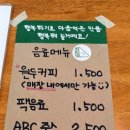 행복하기로 마음먹은 만큼
행복해 질거에요!
음료메뉴
원두커피 1,500
(매장 내에서만 가능)
팥음료 1,500
ABC 쥬스 1,500